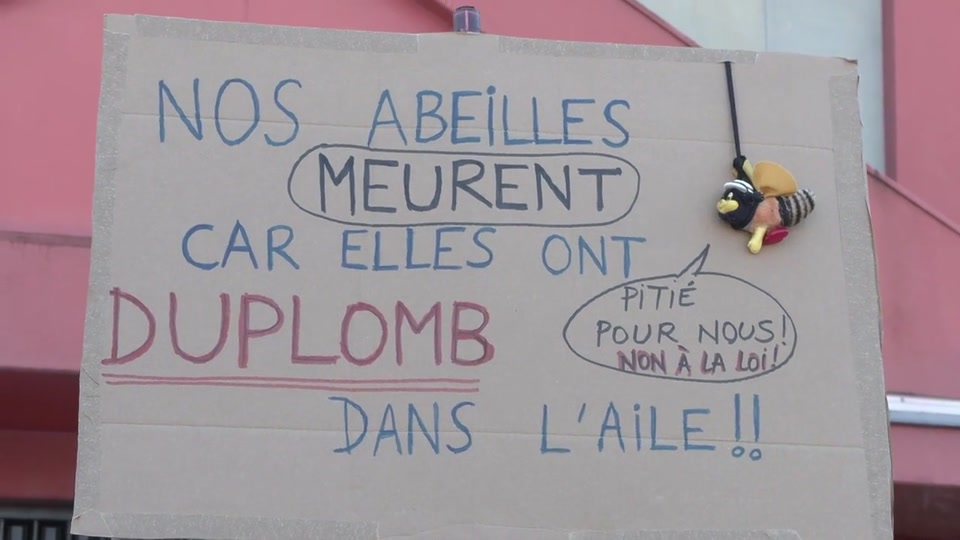 NOS ABEILLES
MEURENT
CAR ELLES ONT
DUPLOMB
DANS L'AILE!!
PITIÉ
POUR NOUS!
NON À LA LOI!